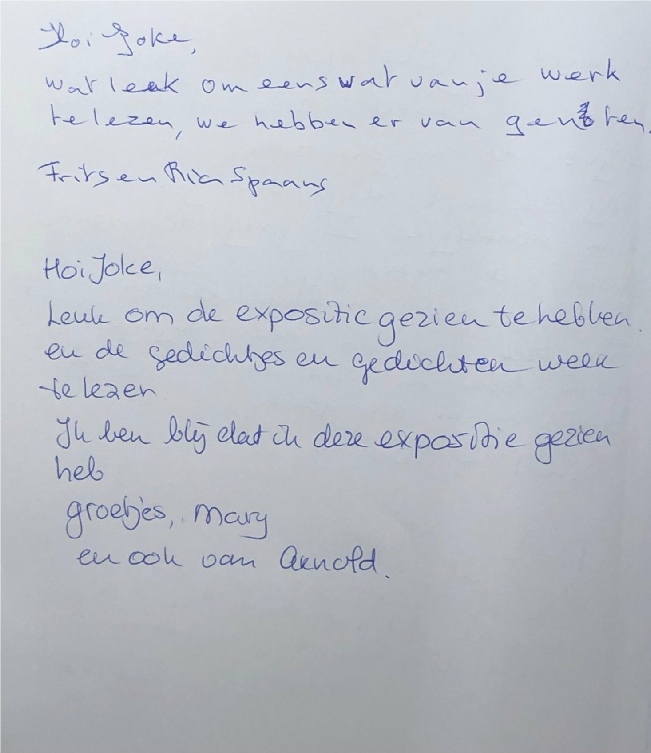 Hoi Joke,
wat leuk om eens wat van je werk
te lezen, we hebben er van genoten.
Frits en Ria Spaans
Hoi Joke,
Leuk om de expositie gezien te hebben.
en de gedichtjes en gedachten weer
te lezen
Ik ben blij dat ik deze expositie gezien
heb
groetjes, Mary
en ook van Arnold.